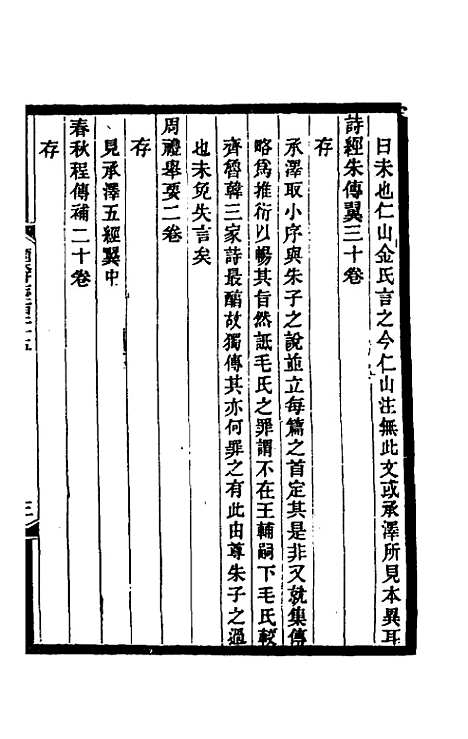 日未也仁山金氏言之今仁山注無此文或承澤所見本異耳
詩經朱傳翼三十卷
存
承澤取小序與朱子之說並立每篇之首定其是非又就集傳
略爲推衍以暢其旨然詆毛氏之罪謂不在王輔嗣下毛氏較
齊魯韓三家詩最醇故獨傳其亦何罪之有此由尊朱子之過
也未免失言矣
周禮舉要二卷
存
見承澤五經翼中
春秋程傳補二十卷
存
三